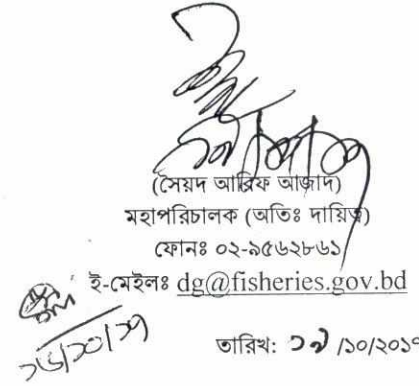 (সৈয়দ আরিফ আজাদ)
মহাপরিচালক (অতিঃ দায়িত্ব)
ফোনঃ ০২-৯৫৬২৮৬১
ই-মেইলঃ dg@fisheries.gov.bd
তারিখ: /১০/২০১৭